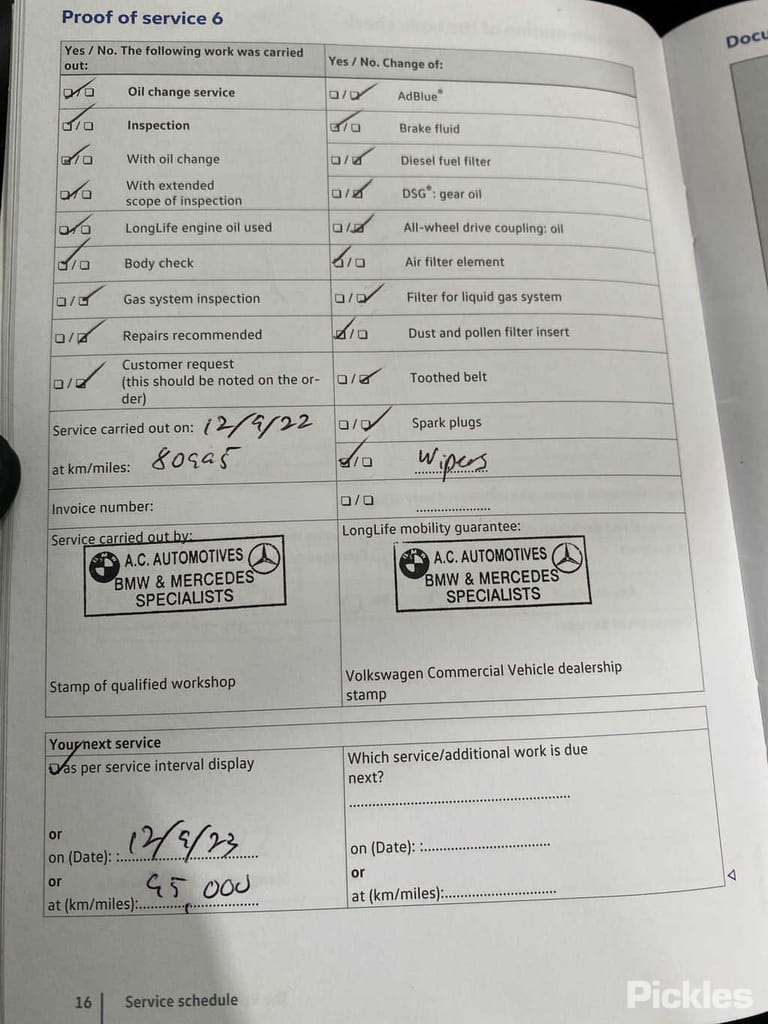 Proof of service 6
Docu
Yes / No. The following work was carried
out:
Yes / No. Change of:
Oil change service
AdBlue*
Inspection
Brake fluid
With oil change
Diesel fuel filter
With extended
scope of inspection
DSG*: gear oil
LongLife engine oil used
All-wheel drive coupling: oil
Body check
Air filter element
Gas system inspection
Filter for liquid gas system
Repairs recommended
Dust and pollen filter insert
Customer request
(this should be noted on the or-
der)
Toothed belt
Service carried out on: 12/9/22
Spark plugs
at km/miles: 80995
Wipers
Invoice number:
Service carried out by:
A.C. AUTOMOTIVES
BMW & MERCEDES
SPECIALISTS
Stamp of qualified workshop
LongLife mobility guarantee:
A.C. AUTOMOTIVES
BMW & MERCEDES
SPECIALISTS
Volkswagen Commercial Vehicle dealership
stamp
Your next service
as per service interval display
or
on (Date): : 12/9/23
or
at (km/miles): 95,000
Which service/additional work is due
next?
on (Date): :
or
at (km/miles):
16 Service schedule
Pickles